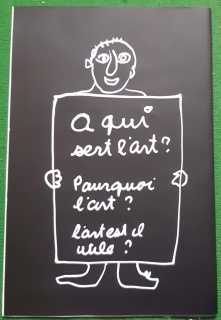 a qui
sert l'art ?
Pourquoi
l'art ?
l'art est il
utile ?